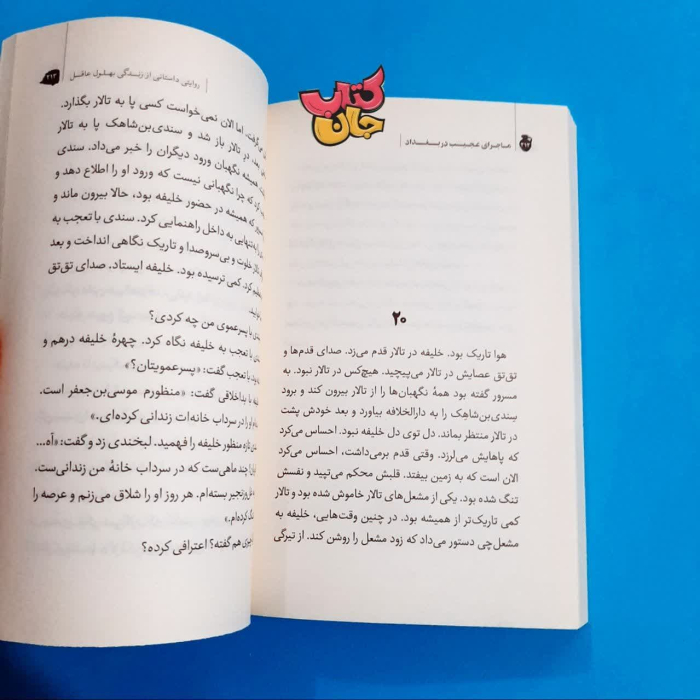 کتاب
جان
ماجرای عجیب در بغداد
۲۰
هوا تاریک بود. خلیفه در تالار قدم می‌زد. صدای قدم‌ها و
تق‌تق عصایش در تالار می‌پیچید. هیچ‌کس در تالار نبود. به
مسرور گفته بود همهٔ نگهبان‌ها را از تالار بیرون کند و برود
سِندی‌بن‌شاهک را به دارالخلافه بیاورد و بعد خودش پشت
در تالار منتظر بماند. دل توی دل خلیفه نبود. احساس می‌کرد
که پاهایش می‌لرزد. وقتی قدم برمی‌داشت، احساس می‌کرد
الان است که به زمین بیفتد. قلبش محکم می‌تپید و نفسش
تنگ شده بود. یکی از مشعل‌های تالار خاموش شده بود و تالار
کمی تاریک‌تر از همیشه بود. در چنین وقت‌هایی، خلیفه به
مشعل‌چی دستور می‌داد که زود مشعل را روشن کند. از تیرگی
روایتی داستانی از زندگی بهلول عاقل ۲۱۳
گرفت. اما الان نمی‌خواست کسی پا به تالار بگذارد.
بعد، در تالار باز شد و سندی‌بن‌شاهک پا به تالار
همیشه نگهبان ورود دیگران را خبر می‌داد. سندی
کرد که چرا نگهبانی نیست که ورود او را اطلاع دهد و
که همیشه در حضور خلیفه بود، حالا بیرون ماند و
به‌تنهایی به داخل راهنمایی کرد. سندی با تعجب به
تالار خلوت و بی‌سروصدا و تاریک نگاهی انداخت و بعد
کرد. کمی ترسیده بود. خلیفه ایستاد. صدای تق‌تق
با پسرعموی من چه کردی؟
با تعجب به خلیفه نگاه کرد. چهرهٔ خلیفه درهم و
با تعجب گفت: «پسرعمویتان؟»
با بداخلاقی گفت: «منظورم موسی‌بن‌جعفر است.
او را در سرداب خانه‌ات زندانی کرده‌ای.»
تازه منظور خلیفه را فهمید. لبخندی زد و گفت: «آه...
چند ماهی‌ست که در سرداب خانهٔ من زندانی‌ست.
زنجیر بسته‌ام. هر روز او را شلاق می‌زنم و عرصه را
کرده‌ام.»
هم گفته؟ اعترافی کرده؟